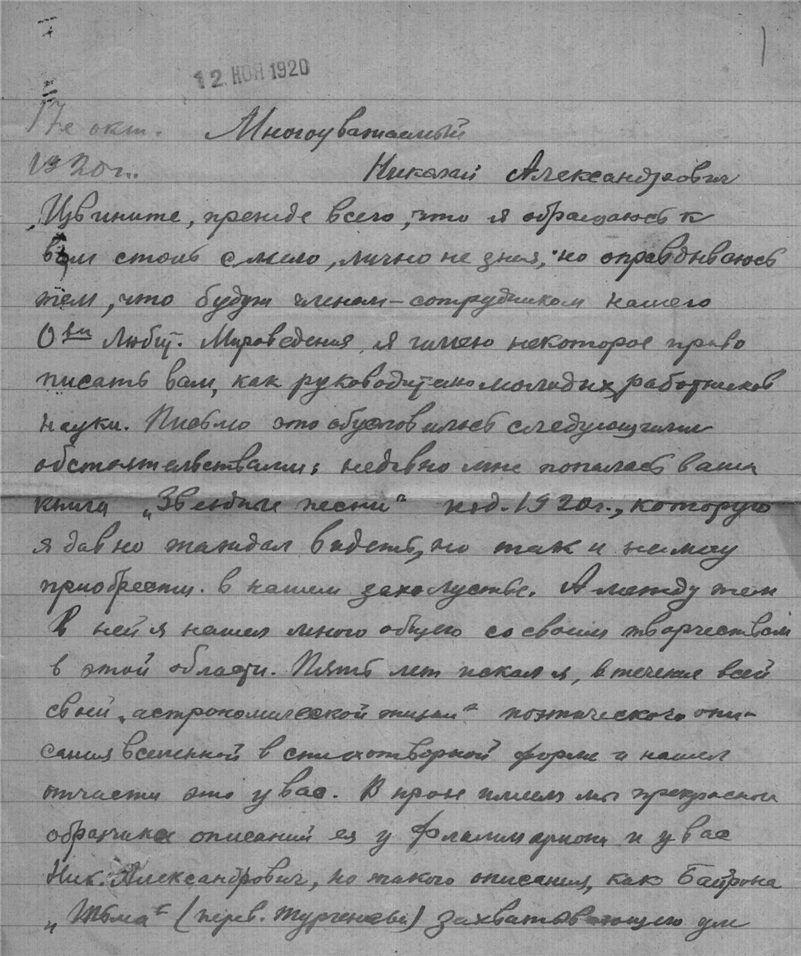 12 НОЯ 1920
17е окт. Многоуважаемый
1920г. Николай Александрович
Извините, прежде всего, что я обращаюсь к
вам столь смело, лично не зная, но оправдываюсь
тем, что будучи членом-сотрудником нашего
О-ва Любит. Мироведения, я имею некоторое право
писать вам, как руководителю молодых работников
науки. Письмо это обусловилось следующими
обстоятельствами: недавно мне попалась ваша
книга „Звездные песни“ изд. 1920г., которую
я давно жаждал видеть, но так и не мог
приобрести в нашем захолустье. А между тем
в ней я нашел много общего со своим творчеством
в этой области. Пять лет искал я, в течение всей
своей „астрономической жизни“ поэтического опи-
сания вселенной в стихотворной форме и нашел
отчасти это у вас. В прозе имеем мы прекрасные
образчики описаний ея у Фламмариона и у вас
Ник. Александрович, но такого описания, как Байрона
„Тьма“ (перев. Тургенева) захватывающего ум